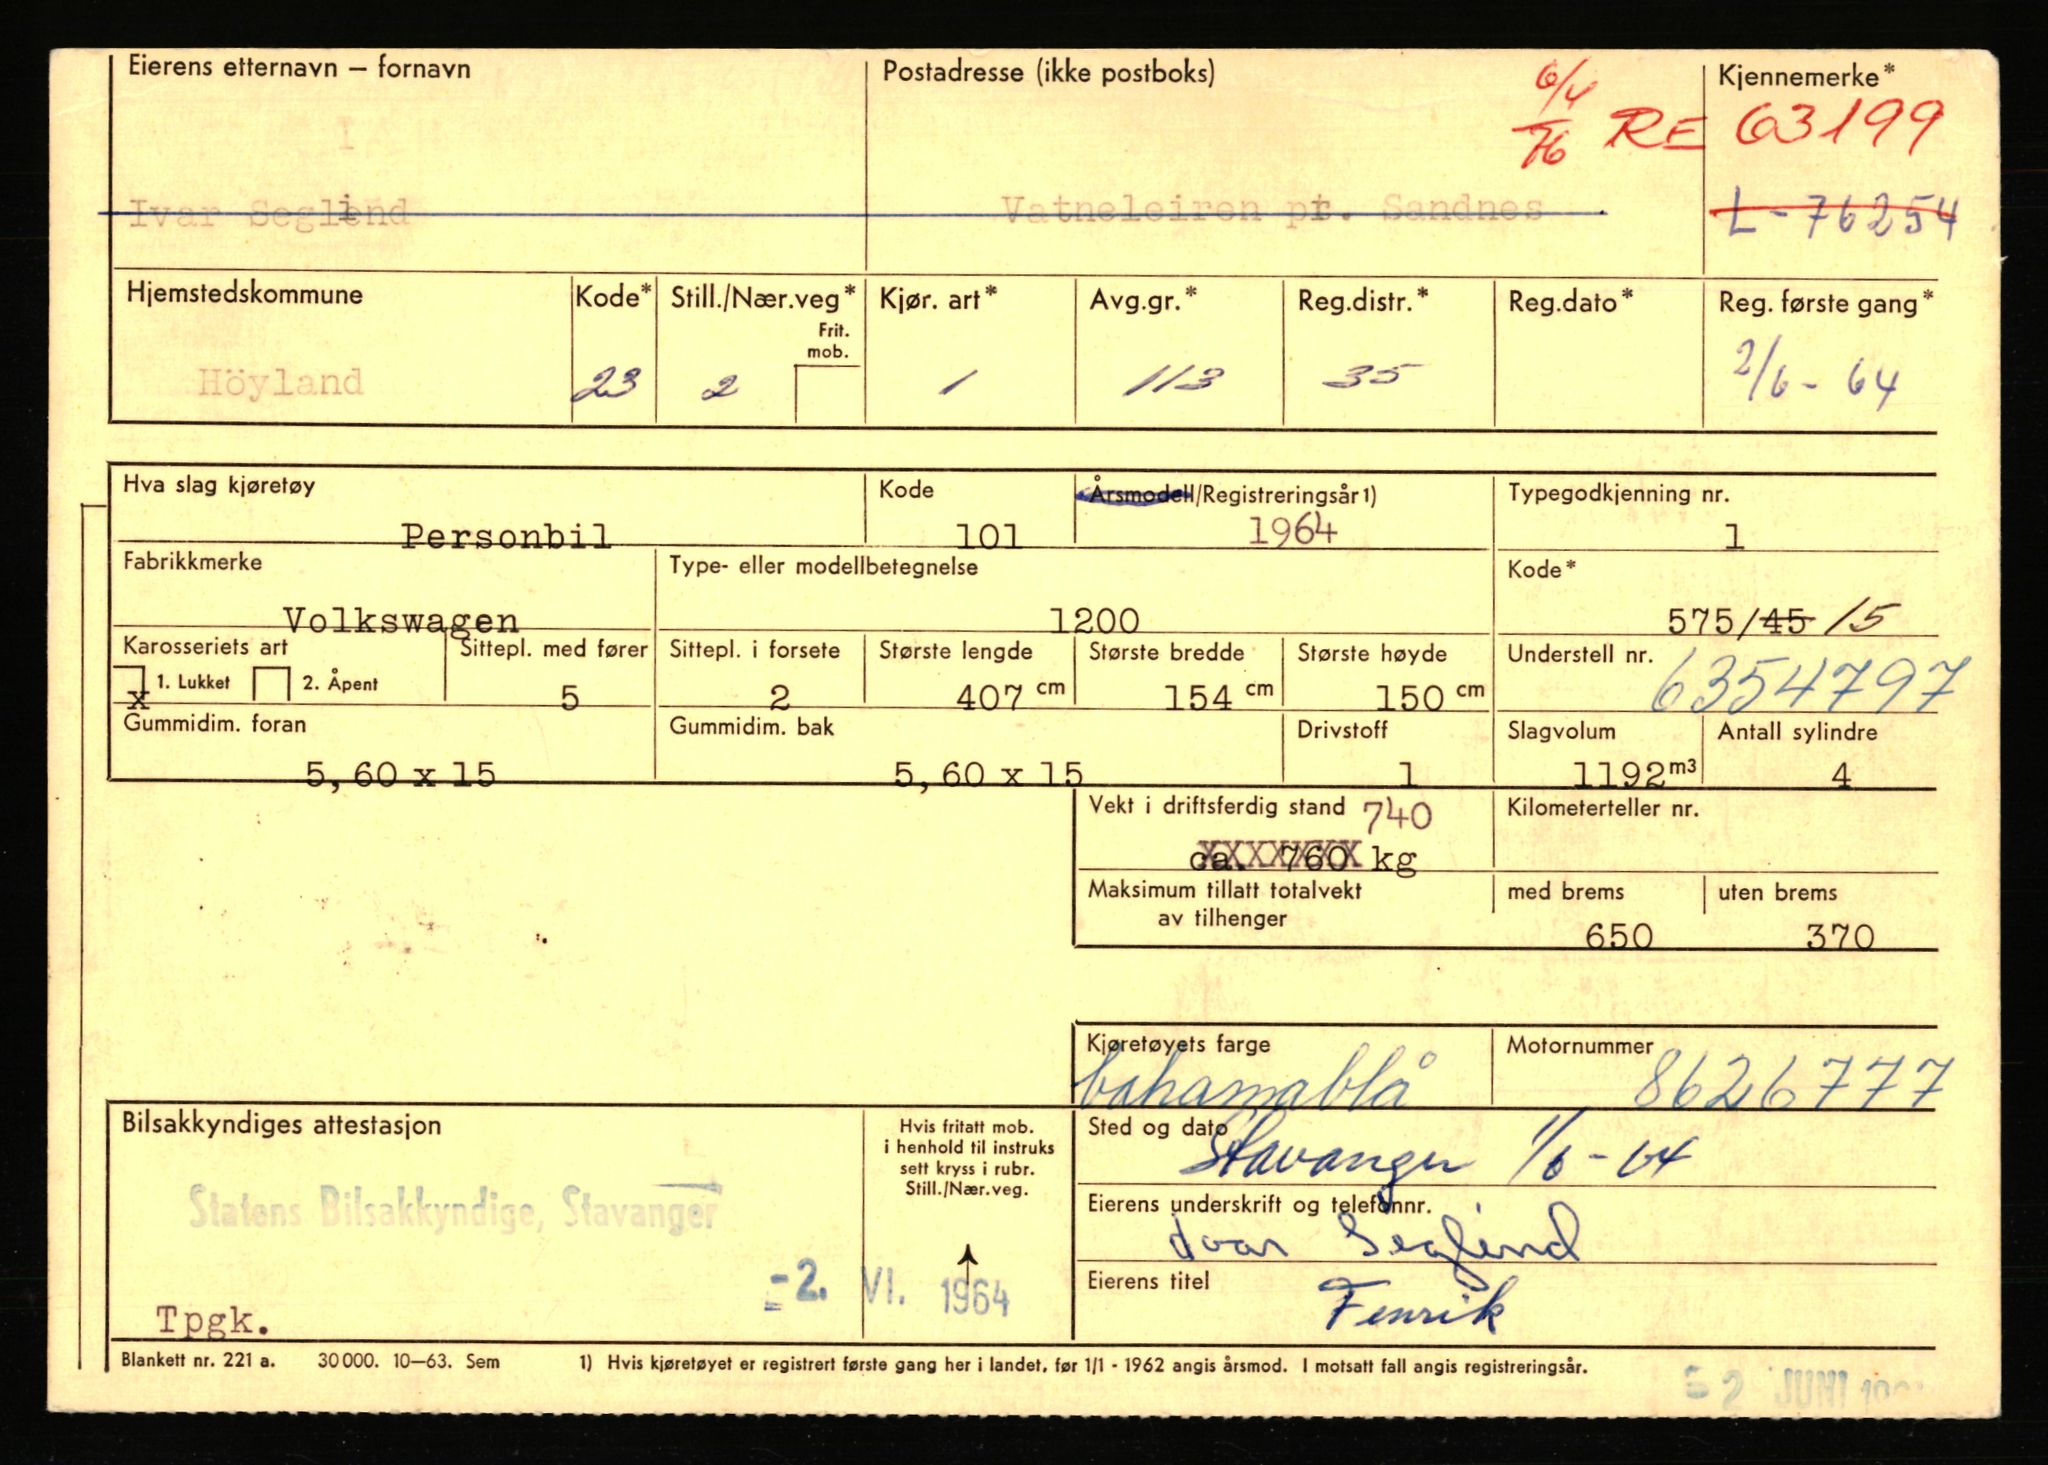 Eierens etternavn – fornavn
Postadresse (ikke postboks)
Kjennemerke*
6/4 76 RE 63199
Ivar Seglend
Vatneleiren pr. Sandnes
L-76254
Hjemstedskommune
Kode*
Still./Nær.veg*
Frit. mob.
Kjør. art*
Avg.gr.*
Reg.distr.*
Reg.dato*
Reg. første gang*
Höyland
23
2
1
113
35
2/6-64
Hva slag kjøretøy
Kode
Årsmodell/Registreringsår1)
Typegodkjenning nr.
Personbil
101
1964
1
Fabrikkmerke
Type- eller modellbetegnelse
Kode*
Volkswagen
1200
575/45 15
Karosseriets art
Sittepl. med fører
Sittepl. i forsete
Største lengde
Største bredde
Største høyde
Understell nr.
x 1. Lukket 2. Åpent
5
2
407 cm
154 cm
150 cm
6354797
Gummidim. foran
Gummidim. bak
Drivstoff
Slagvolum
Antall sylindre
5,60 x 15
5,60 x 15
1
1192 m3
4
Vekt i driftsferdig stand 740
Kilometerteller nr.
ca. 760 kg
Maksimum tillatt totalvekt
av tilhenger
med brems
uten brems
650
370
Kjøretøyets farge
Motornummer
bahamablå
8626777
Bilsakkyndiges attestasjon
Hvis fritatt mob.
i henhold til instruks
sett kryss i rubr.
Still./Nær.veg.
Sted og dato
Stavanger 1/6-64
Statens Bilsakkyndige, Stavanger
Eierens underskrift og telefonnr.
Ivar Seglend
-2. VI. 1964
Eierens titel
Fenrik
Tpgk.
Blankett nr. 221 a. 30000. 10-63. Sem
1) Hvis kjøretøyet er registrert første gang her i landet, før 1/1 - 1962 angis årsmod. I motsatt fall angis registreringsår.
2 JUNI